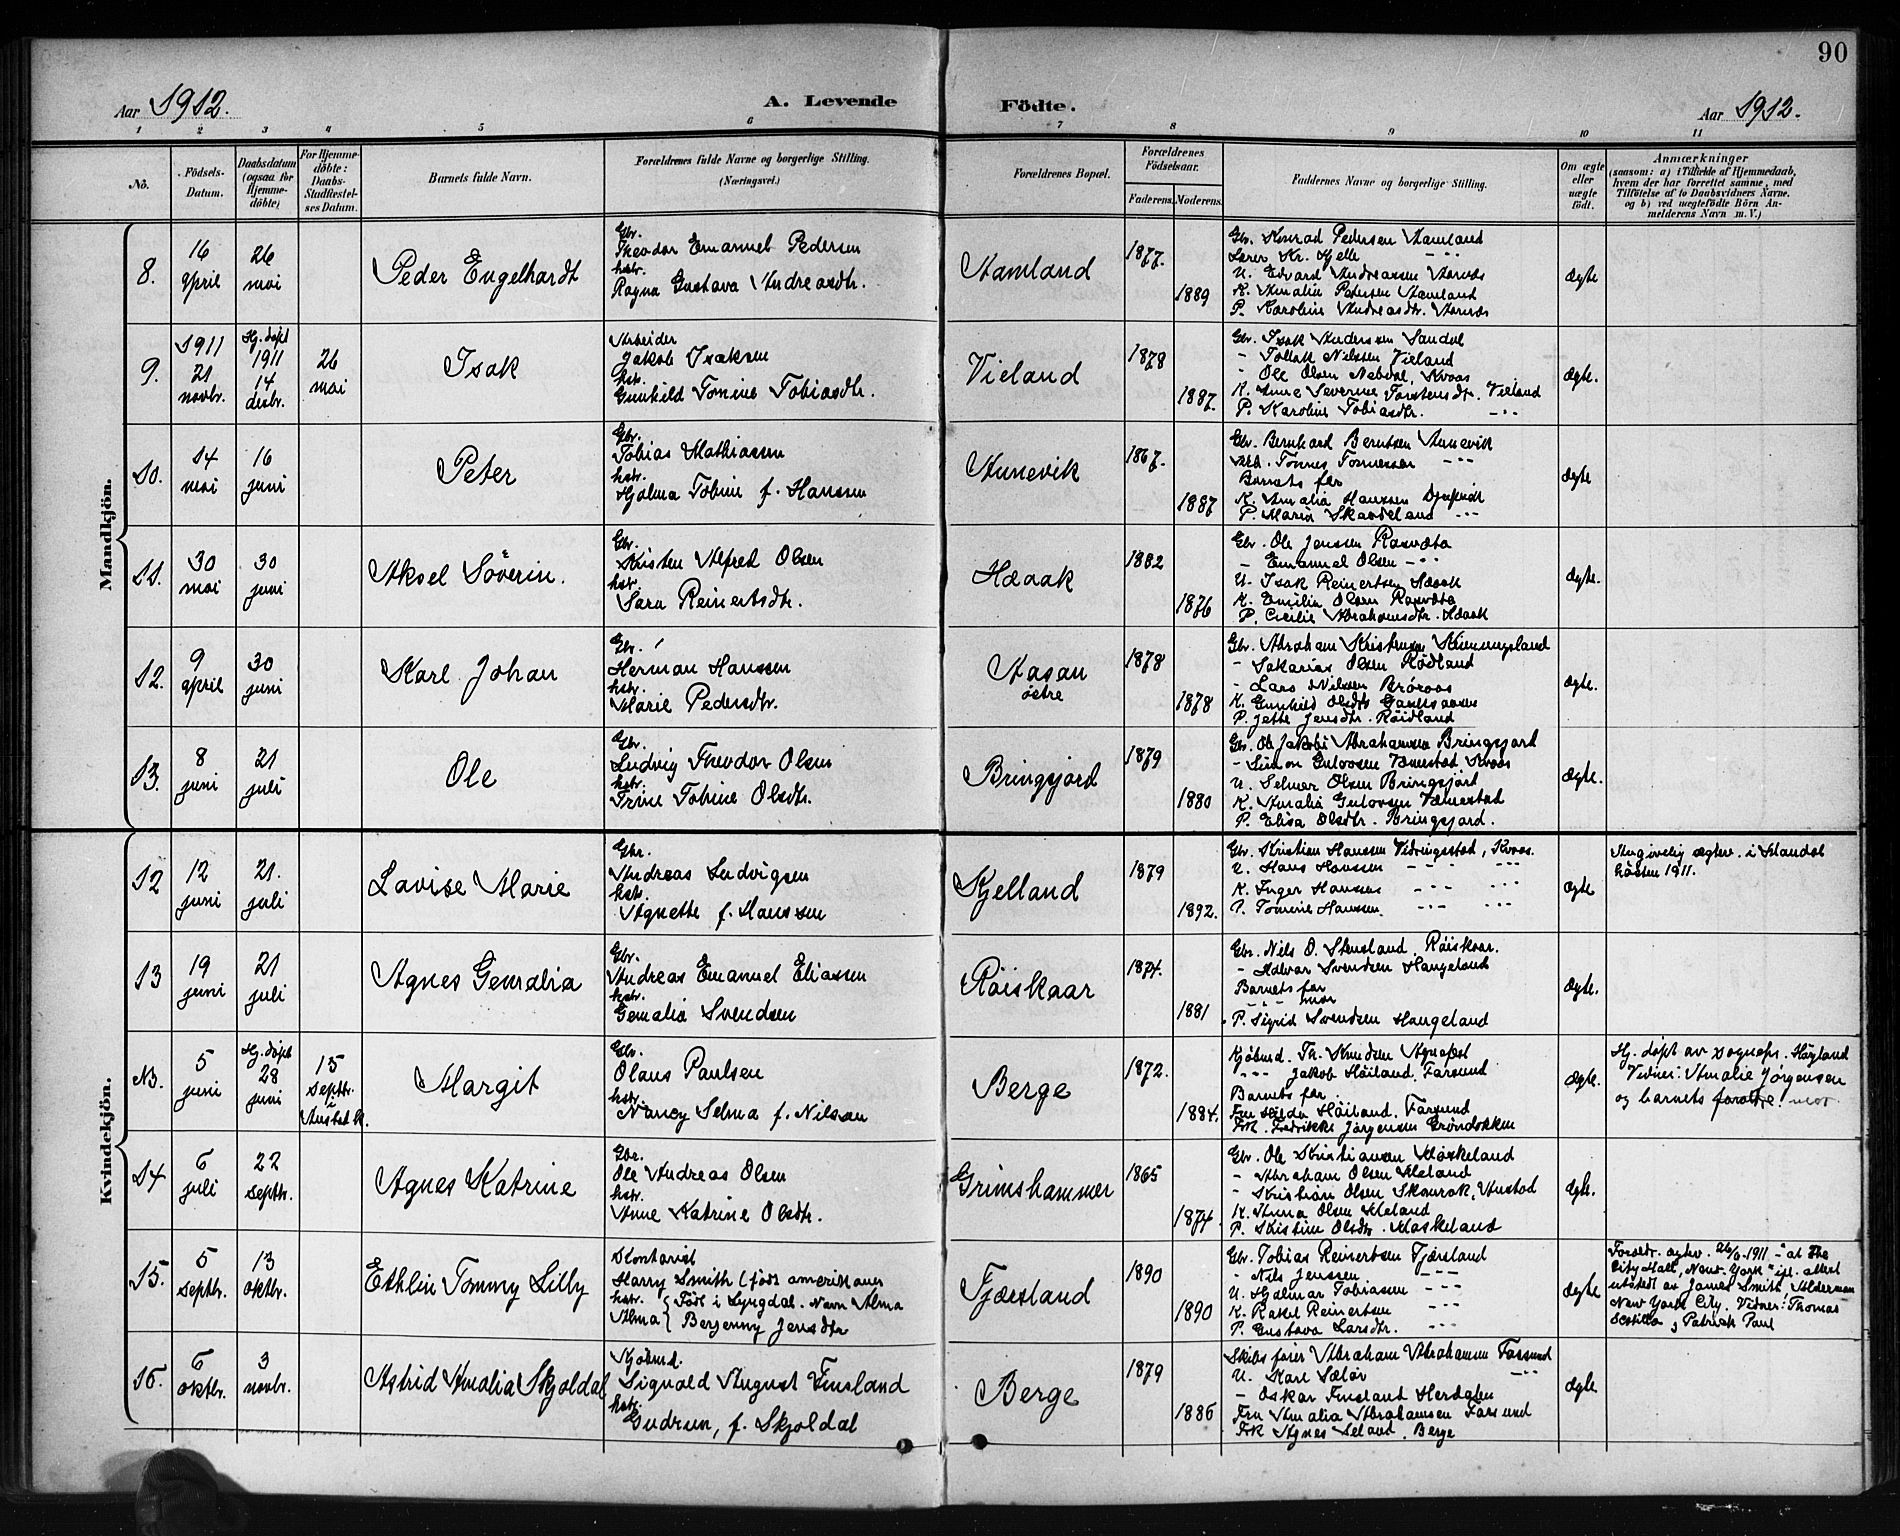 90
Aar 1912.
A. Levende Födte.
Aar 1912.
1 2 3 4 5 6 7 8 9 10 11
No.
Födsels-Datum.
Daabsdatum (ogsaa for Hjemme-döbte)
For Hjemme-döbte: Daabs-Stadfæstel-ses Datum.
Barnets fulde Navn.
Forældrenes fulde Navne og borgerlige Stilling.
(Næringsvei.)
Forældrenes Bopæl.
Forældrenes Födselsaar.
Faderens. Moderens.
Faddernes Navne og borgerlige Stilling.
Om ægte eller uægte födt.
Anmærkninger
(saasom: a) i Tilfælde af Hjemmedaab,
hvem der har forrettet samme, med
Tilföielse af to Daabsvidners Navne.
og b) ved uægtefödte Börn An-
melderens Navn m. V.)
Mandkjön.
8.
16 april
26 mai
Peder Engelhardt
Gbr.
Theodor Emanuel Pedersen
hstr.
Ragna Gustava Andreasdtr.
Aamland
1877.
1889
Gbr. Konrad Pedersen Aamland
Lærer Kr. Hjelle - " -
U. Edvard Andreassen Aarnes
K. Amalie Pedersen Aamland
P. Karoline Andreasdtr. Aarnes
ægte
9.
1911 21 novbr.
Hj. døpt 1911 14 desbr.
26 mai
Isak
Arbeider
Jakob Isaksen
hstr.
Gunhild Tomine Tobiasdtr.
Vieland
1878
1887.
Gbr. Isak Andersen Sandal
- Tollak Nilssen Vieland
- Ole Olsen Nebdal, Kvaas
K. Anne Severine Torstensdtr. Vieland
P. Karoline Tobiasdtr. - " -
ægte.
10.
14 mai
16 juni
Peter
Gbr.
Tobias Mathiassen
hstr.
Hjalma Tobine f. Hanssen
Aunevik
1867.
1887
Gbr. Bernhard Berntsen Aunevik
Arb. Tønnes Tønnessen - " -
Barnets far
K. Amalia Hanssen
P. Maria Skavdeland - " -
ægte
11.
30 mai
30 juni
Aksel Söverin.
Gbr.
Kristen Alfred Olsen
hstr.
Sara Reinertsdtr.
Haaak
1882
1876
Gbr. Ole Jenssen Rosvata
- Emanuel Olsen - " -
U. Isak Reinertsen Haaak
K. Emilie Olsen Rosvata
P. Cecilie Abrahamsdtr. Haaak
ægte.
12.
9 april
30 juni
Karl Johan
Gbr.
Herman Hanssen
hstr.
Marie Pedersdtr.
Aasan
östre
1878
1878
Gbr. Abraham Kristensen
- Sakarias Olsen Rödland
- Lars Nilssen Brörvas
K. Gunhild Olsdtr.
P. Jette Jensdtr. Röidland
ægte.
13.
8 juni
21 juli
Ole
Gbr.
Ludvig Theodor Olsen
hstr.
Trine Tobine Olsdtr.
Bringsjord
1879
1880
Gbr. Ole Jakobi Abrahamsen Bringsjord
- Simon Gulovsen Vemestad Kvaas
U. Selmer Olsen Bringsjord
K. Amalia Gulovsen Vemestad
P. Elisa Olsdtr. Bringsjord.
ægte.
Kvindekjön.
12
12 juni
21. juli
Lavise Marie
Gbr.
Andreas Ludvigsen
hstr.
Agnette f. Hanssen
Skjelland
1879
1892.
Gbr. Kristian Hanssen Vidringsstad, Kvaas.
U. Hans Hanssen - " -
K. Inger Hanssen - " -
P. Tomine Hanssen. - " -
ægte
Angivelig ægtev. i Mandal
hösten 1911.
13
19 juni
21 juli
Agnes Gemalia
Gbr.
Andreas Emanuel Eliassen
hstr.
Gemalia Svendsen
Röiskaar
1874.
1881
Gbr. Nils O. Stensland Röiskaar.
- Halvar Svendsen Haugeland
Barnets far
- " - mor
P. Sigrid Svendsen Haugeland
ægte.
N3.
5 juni
Hj. døpt 28 juni
15 septbr. i Austad k.
Margit
Gbr.
Olaus Paulsen
hstr.
Nancy Selma f. Nilssen
Berge
1872.
1884.
Kjöbmd. Th. Knudsen Agnefest
- " - Jakob Höiland, Farsund
Barnets far
Fru Hilda Höiland, Farsund
Frk. Fredrikke Jörgensen Gröndokken
ægte.
Hj. døpt av sognepr. Høyland
Vidner: Amalie Jørgensen
og barnets foreldre. mor.
14
6 juli
22 septbr.
Agnes Katrine
Gbr.
Ole Andreas Olsen
hstr.
Anne Katrine Olsdtr.
Grimshammer
1865
1874.
Gbr. Ole Kristiansen Møskeland
- Abraham Olsen Meland
- Kristian Olsen Skourak, Austad
K. Anna Olsen Meland
P. Kistine Olsdtr. Møskeland
ægte.
15.
5 septbr.
13 oktbr.
Ethlin Tommy Lilly
Kontorist
Harry Smith (født amerikaner
hstr. { Født i Lyngdal. Navn Alma
Alma { Berjenny Jensdtr
Fjæsland
1890
1890
Gbr. Tobias Reinertsen Fjæsland
- Nils Jenssen - " -
U. Hjalmar Tobiassen - " -
K. Rakel Reinertsen - " -
P. Gustava Larsdtr. - " -
ægte
Foreldr. ægtev. 26/6 1911 - "at the
City Hall, New-York" ifl. attest
utstedt av James Smith, Alderman
New York City. Vidner: Thomas
og Patrick Paul
16.
6 oktbr.
3 novbr.
Astrid Amalia Skjoldal
Kjöbmd.
Sigvald August Finsland
hstr.
Gudrun, f. Skjoldal
Berge
1879
1886
Skibsfører Abraham Abrahamsen Farsund
U. Karl Sælør - " -
- Oskar Finsland Herdalen
Fru Amalia Abrahamsen Farsund
Frk Agnes Seland. Berge
ægte